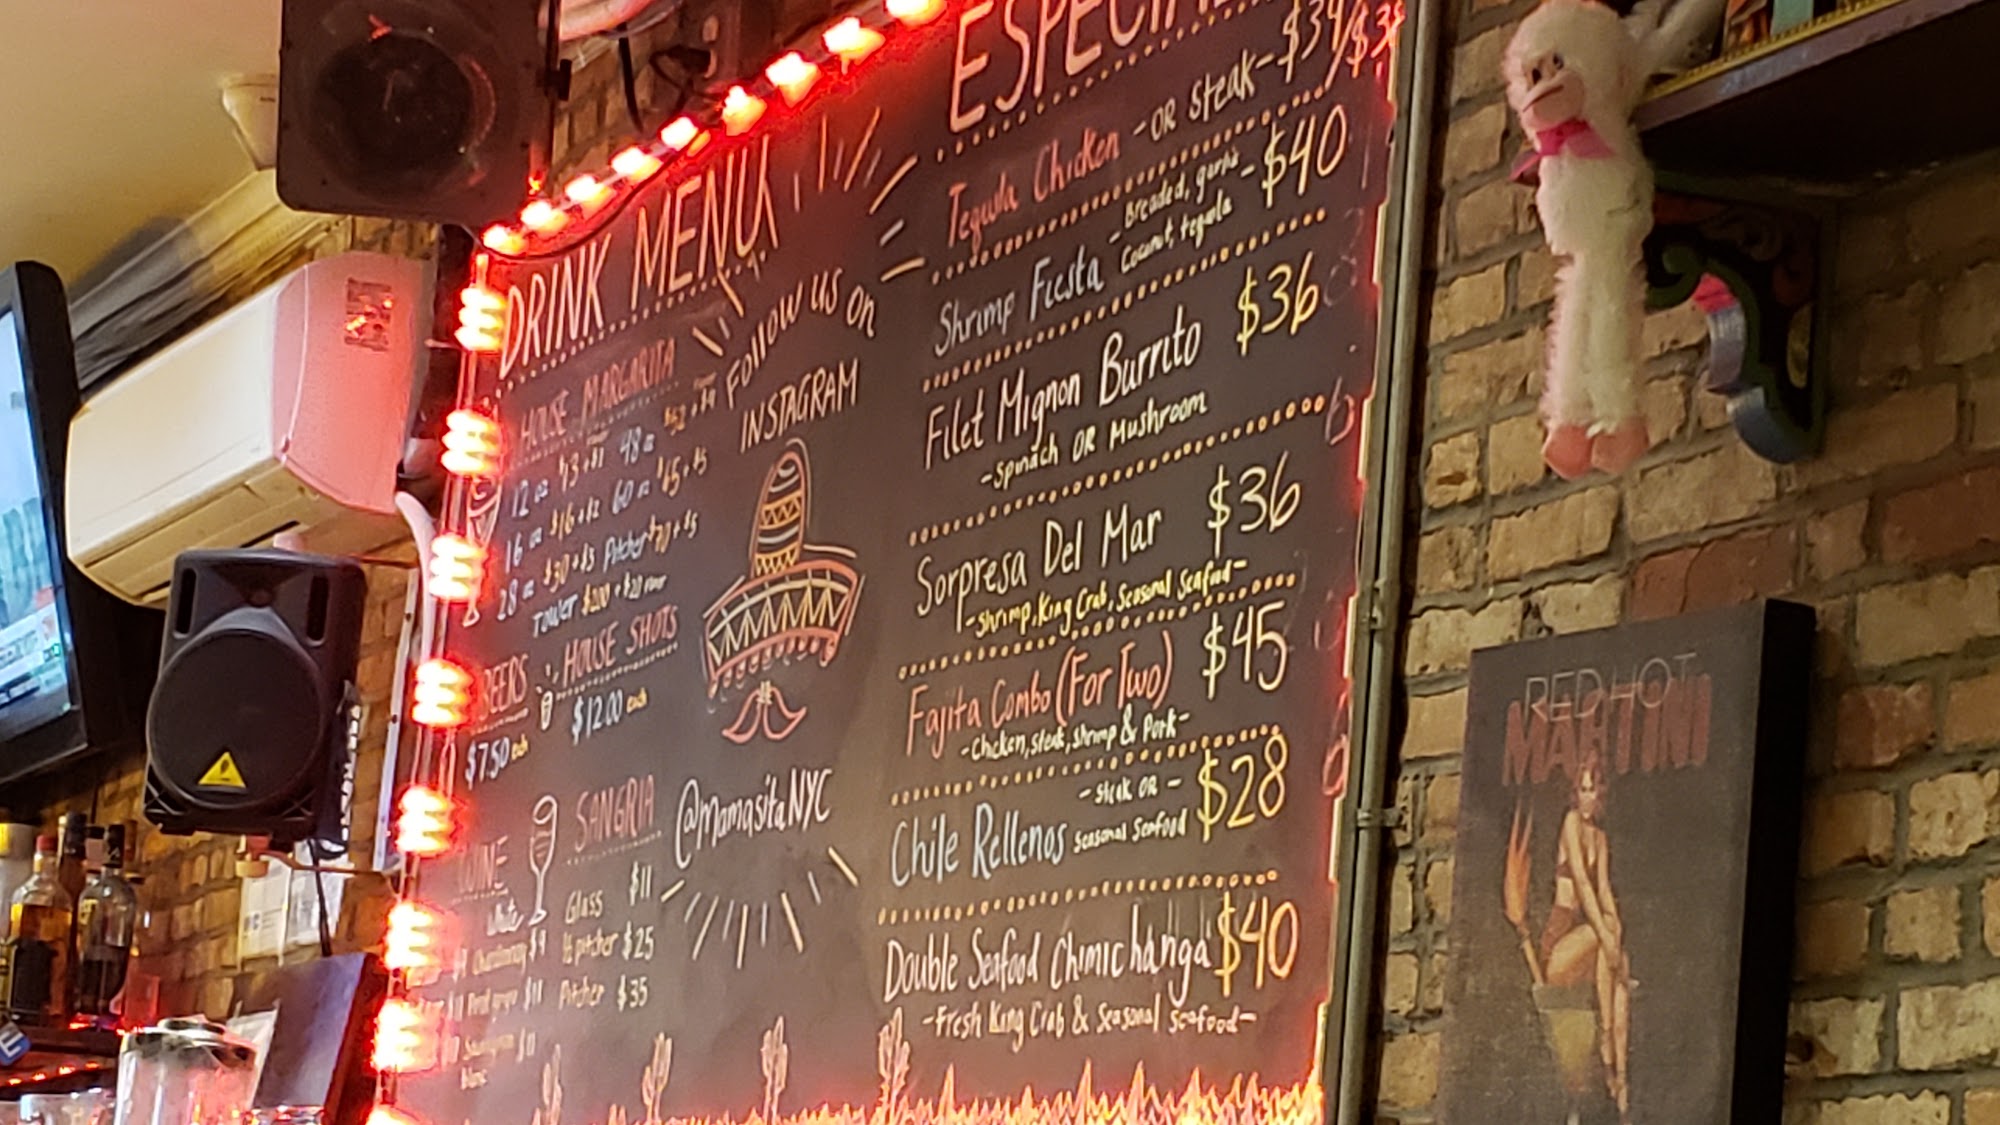 DRINK MENU
HOUSE MARGARITA
12 oz $13 + $1 48 oz
16 oz $16 + $2 60 oz $65 + $5
28 oz $30 + $3 Pitcher $70 + $5
TOWER $200 + $20
BEERS
$7.50 each
HOUSE SHOTS
$12.00 each
WINE
White
Chardonnay $9
$11 Pinot grigio $11
Sauvignon $11
blanc
SANGRIA
Glass $11
½ pitcher $25
Pitcher $35
Follow us on
INSTAGRAM
@MamasitaNYC
Tequila Chicken -OR Steak-
Shrimp Fiesta - Breaded, garlic - $40
Coconut, tequila
Filet Mignon Burrito $36
-Spinach OR Mushroom
Sorpresa Del Mar $36
-Shrimp, King Crab, Seasonal Seafood-
Fajita Combo (For Two) $45
-Chicken, steak, shrimp & Pork-
Chile Rellenos - steak OR - $28
Seasonal Seafood
Double Seafood Chimichanga $40
-Fresh King Crab & Seasonal seafood-
RED HOT
MARTINI